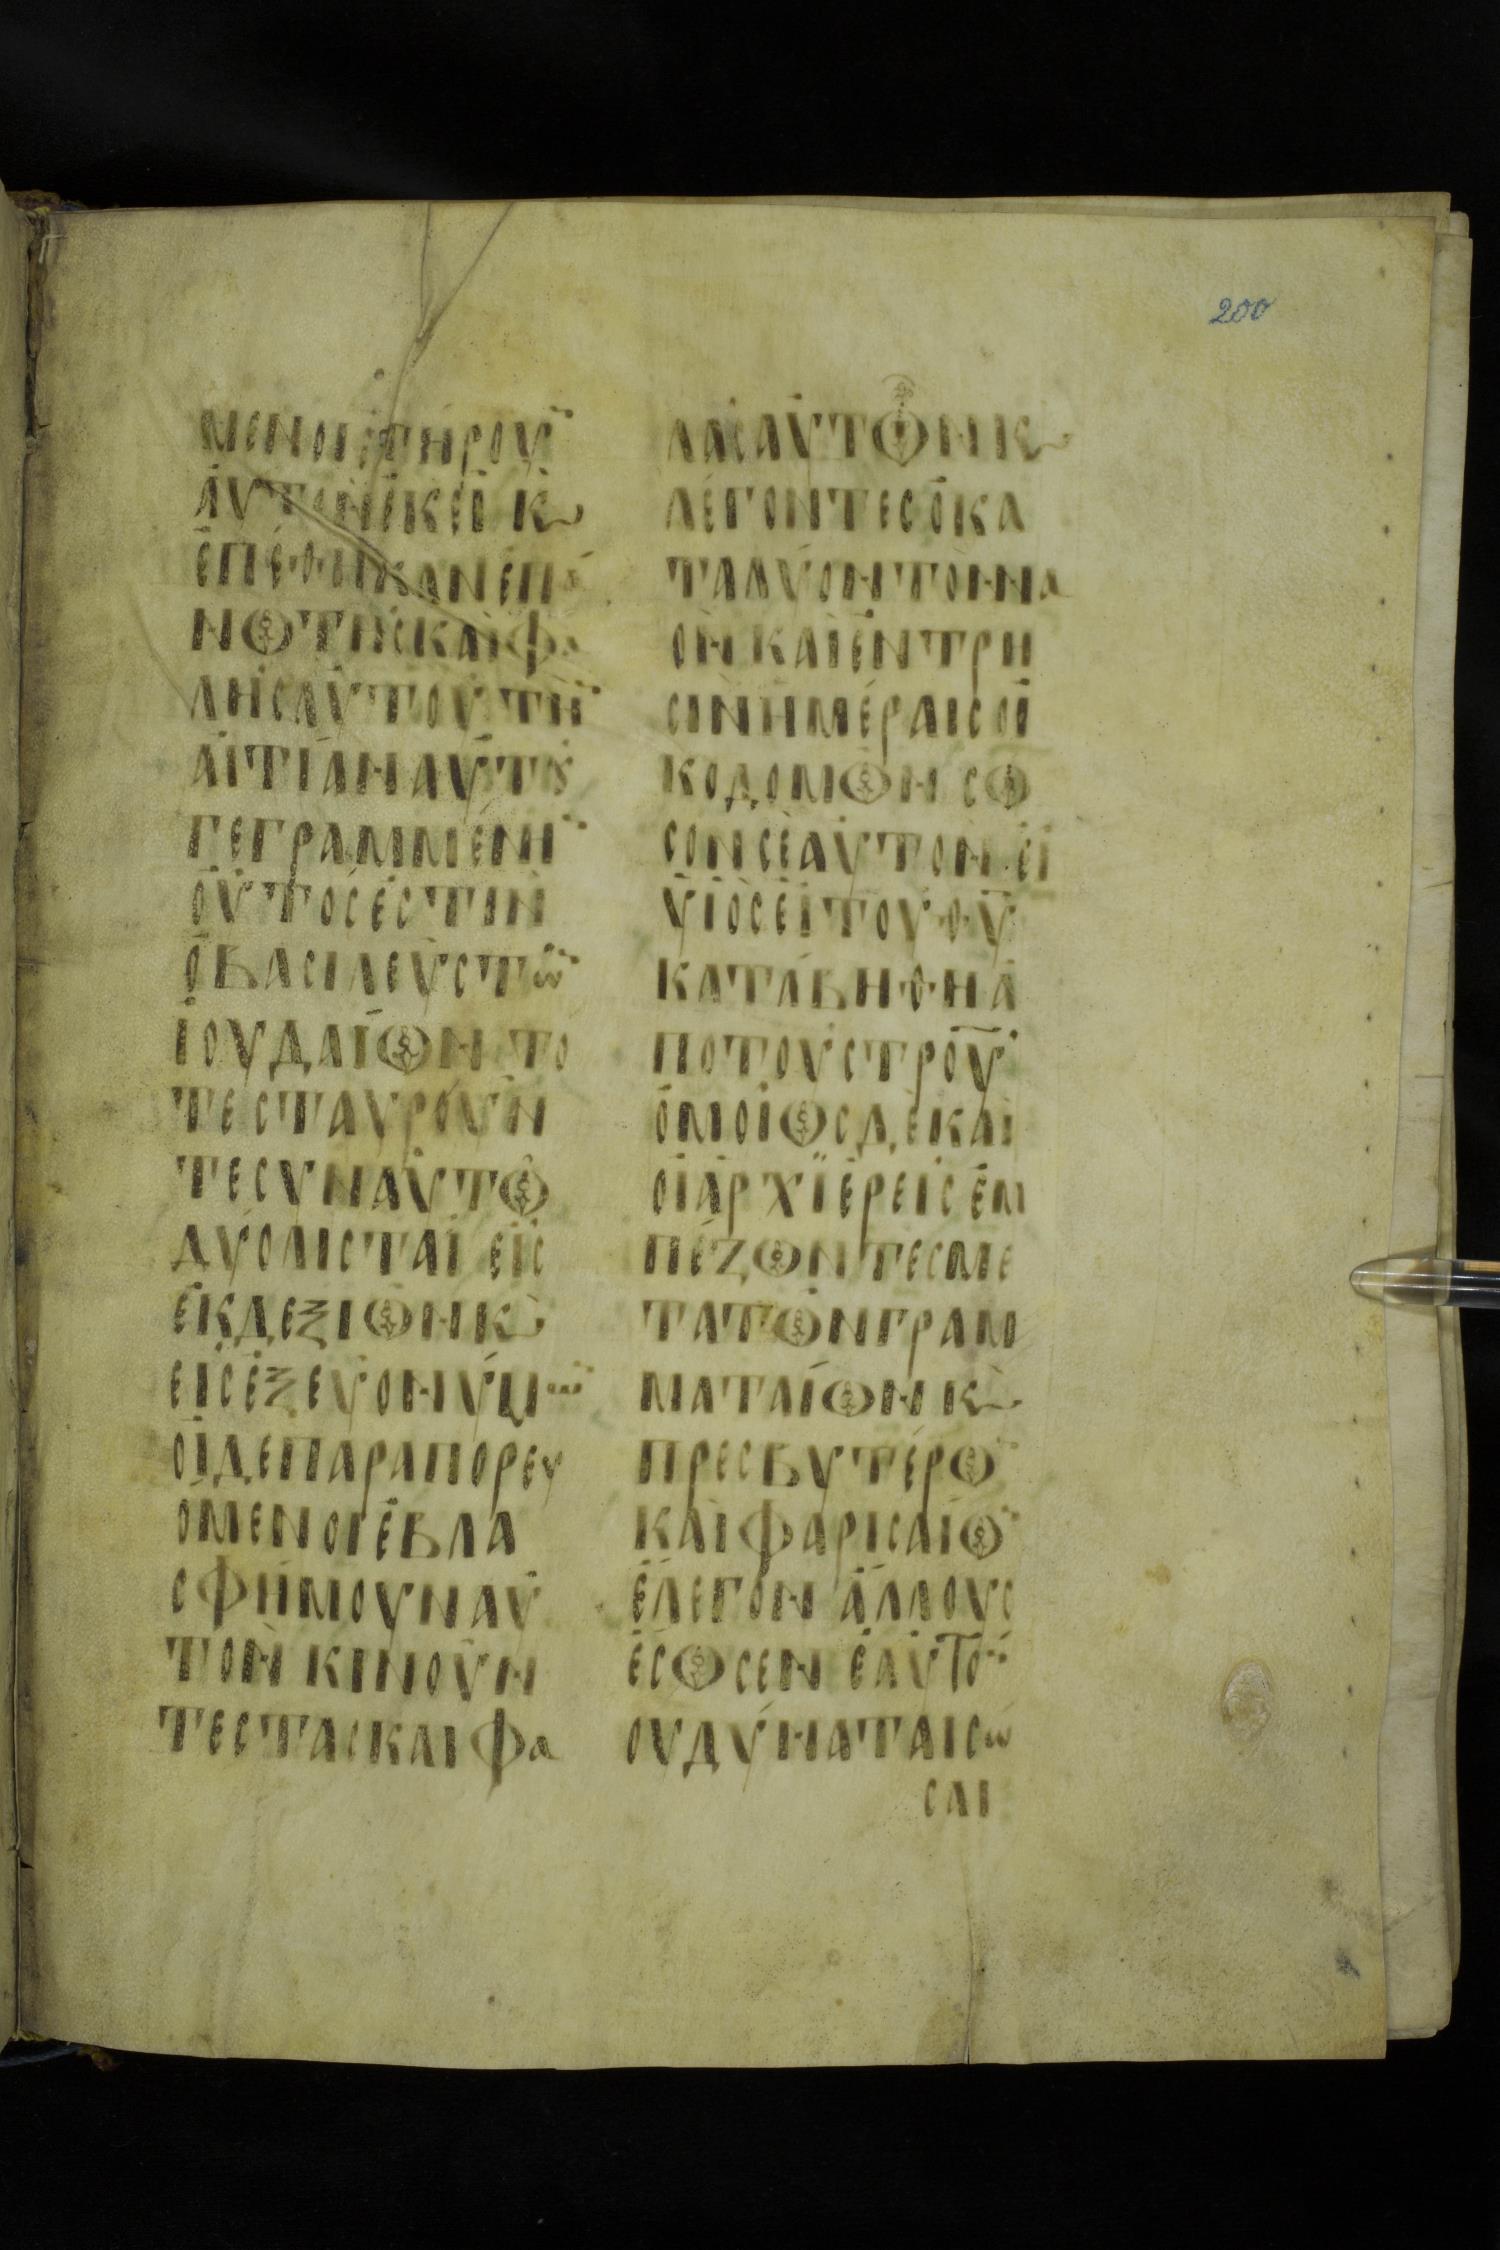 200
ΜΕΝΟΙ ΕΤΗΡΟΫ
ΑΥΤΟΝ ΕΚΕΙ Κ
ΕΠΕΘΗΚΑΝ ΕΠΑ
ΝΩ ΤΗΣ ΚΕΦΑ
ΛΗΣ ΑΥΤΟΥ ΤΗ̈
ΑΙΤΙΑΝ ΑΥΤȢ
ΓΕΓΡΑΜΜΕΝΗ̈
ΟΥΤΟΣ ΕΣΤΙΝ
Ο ΒΑΣΙΛΕΥΣ ΤΩ̈
ΙΟΥΔΑΙΩΝ ΤΟ
ΤΕ ΣΤΑΥΡΟΥΝ
ΤΕ ΣΥΝ ΑΥΤΩ
ΔΥΟ ΛΙΣΤΑΙ ΕΙΣ
ΕΚ ΔΕΞΙΩΝ Κ
ΕΙΣ ΕΞ ΕΥΟΝΥΜΩ̈
ΟΙ ΔΕ ΠΑΡΑΠΟΡΕΥ
ΟΜΕΝΟΙ ΕΒΛΑ
ΣΦΗΜΟΥΝ ΑΥ
ΤΟΝ ΚΙΝΟΥΝ
ΤΕΣ ΤΑΣ ΚΑΙΦΑ
ΛΑΣ ΑΥΤΩΝ Κ
ΛΕΓΟΝΤΕΣ Ο ΚΑ
ΤΑΛΥΟΝ ΤΟΝ ΝΑ
ΟΝ ΚΑΙ ΕΝ ΤΡΗ
ΣΙΝ ΗΜΕΡΑΙΣ ΟΙ
ΚΟΔΟΜΩΝ ΣΩ
ΣΟΝ ΣΕΑΥΤΟΝ ΕΙ
ΥΙΟΣ ΕΙ ΤΟΥ ΘΥ
ΚΑΤΑΒΗΘΗ Α
ΠΟ ΤΟΥ ΣΤΡΟΥ
ΟΜΟΙΩΣ ΔΕ ΚΑΙ
ΟΙ ΑΡΧΙΕΡΕΙΣ ΕΜ
ΠΕΖΩΝΤΕΣ ΜΕ
ΤΑ ΤΩΝ ΓΡΑΜ
ΜΑΤΑΙΩΝ Κ
ΠΡΕΣΒΥΤΕΡΩ̈
ΚΑΙ ΦΑΡΙΣΑΙΩ̈
ΕΛΕΓΟΝ ΑΛΛΟΥΣ
ΕΣΩΣΕΝ ΕΑΥΤΟ̈
ΟΥ ΔΥΝΑΤΑΙ ΣΩ
ΣΑΙ